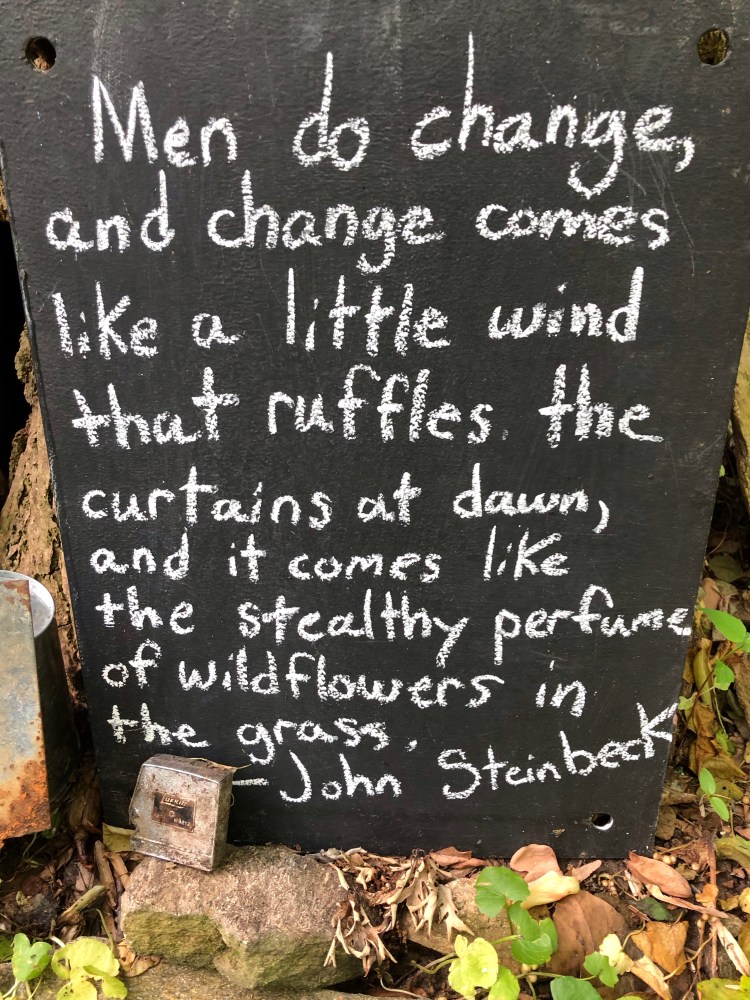 Men do change,
and change comes
like a little wind
that ruffles the
curtains at dawn,
and it comes like
the stealthy perfume
of wildflowers in
the grass.
—John Steinbeck
LUFKIN